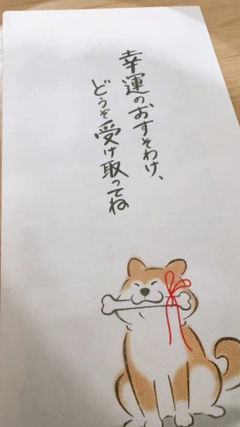 幸運のおすそわけ、
どうぞ受け取ってね